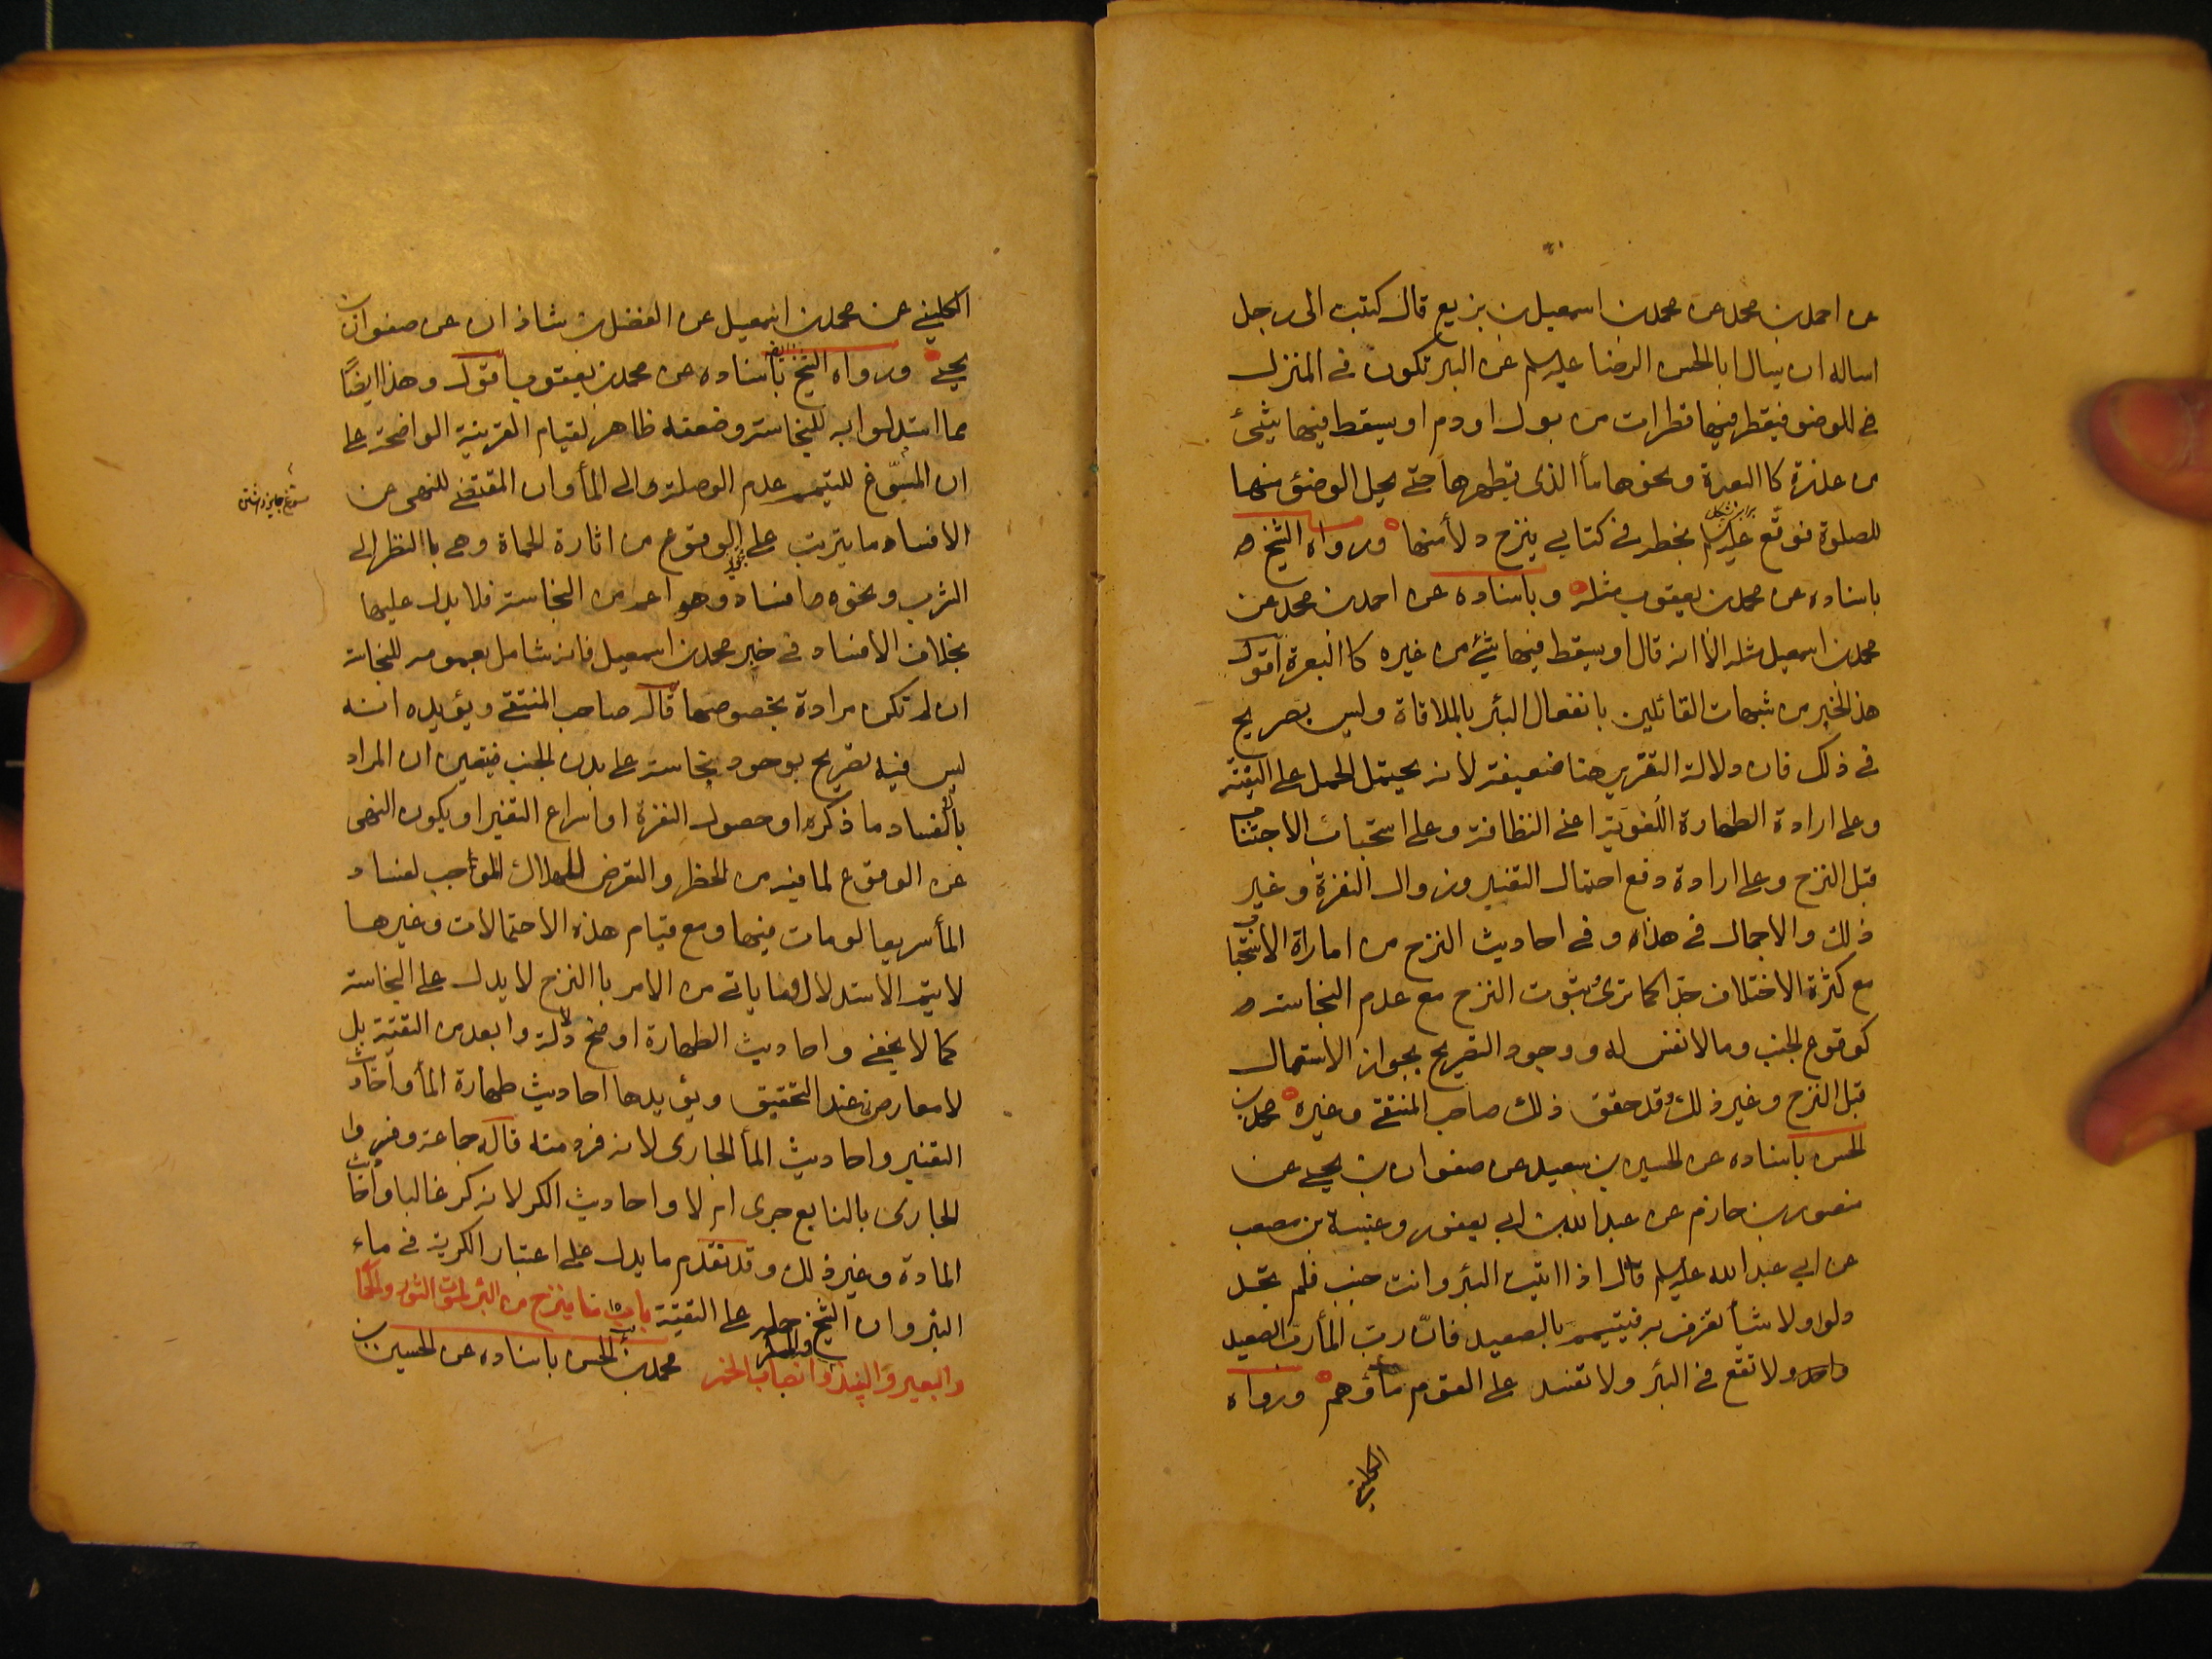 عن احمد بن محمد عن محمد بن اسمعيل بن بزيع قال كتبت الى رجل
اساله ان يسال ابا الحسن الرضا عليه السلم عن البئر تكون فى المنزل
للوضو فيقطر فيها قطرات من بول او دم او يسقط فيها شئ
من عذرة كا البعرة و نحوها ما الذى يطهرها حتى يحل الوضؤ منها
للصلوة فوقّع عليه السلم بخطه فى كتابى ينزح دلأ منها ورواه الشيخ
باسناده عن محمد بن يعقوب مثله وباسناده عن احمد بن محمد عن
محمد بن اسمعيل مثله الا انه قال او يسقط فيها شئ من غيره كا البعرة اقول
هذا الخبر من شبهات القائلين بانفعال البئر بالملاقاة وليس بصريح
فى ذلك فان دلالة التقرير هنا ضعيفة لانه يحتمل الحمل على التقية
وعلى ارادة الطهارة اللغوية اعنى النظافة وعلى استحباب الاجتناب
قبل النزح وعلى ارادة دفع احتمال التغير وزوال النفرة وغير
ذلك والاجمال فى هذا و فى احاديث النزح من امارات الاستحباب
مع كثرة الاختلاف جدا كما ترى وثبوت النزح مع عدم النجاسة
كوقوع الجنب وما لا نفس له ووجود التصريح بجواز الاستعمال
قبل النزح وغير ذلك وقد حقق ذلك صاحب المنتقى وغيره محمد بن
الحسن باسناده عن الحسين بن سعيد عن صفوان بن يحيى عن
منصور بن حازم عن عبد الله بن ابى يعفور وعنبسة بن مصعب
عن ابى عبد الله عليه السلم قال اذا اتيت البئر وانت جنب فلم تجد
دلوا ولا شيأ تغرف به فتيمم بالصعيد فانّ ربّ المأ ربّ الصعيد
واحد ولا تقع فى البئر ولا تفسد على القوم مأوهم ورواه
الكلينى
الكلينى عن محمد بن اسمعيل عن الفضل بن شاذان عن صفوان بن
يحيى ورواه الشيخ باسناده عن محمد بن يعقوب اقول وهذا ايضًا
مما استدلوا به للنجاسة وضعفه ظاهر لقيام القرينة الواضحة على
ان المسوّغ للتيمم عدم الوصلة الى المأ وان المقتضى للنهى عن
الافساد ما يترتب على الوقوع من اثارة الحماة وهى با النظر الى
الشرب ونحوه افساد وهو اعم من النجاسة فلا يدل عليها
بخلاف الافساد فى خبر محمد بن اسمعيل فانه شامل بعمومه للنجاسة
ان لم تكن مرادة بخصوصها قاله صاحب المنتقى ويؤيده انه
ليس فيه تصريح بوجود نجاسة على بدن الجنب فيتعين ان المراد
بالفساد ما ذكره او حصول النفرة او اسراع التغير او يكون النهى
عن الوقوع لما فيه من الخطر والتعرض للهلاك الموجب لفساد
المأ سريعا لو مات فيها ومع قيام هذه الاحتمالات وغيرها
لا يتم الاستدلال وما ياتى من الامر با النزح لا يدل على النجاسة
كما لا يخفى واحاديث الطهارة اوضح دلالة وابعد من التقية بل
لا معارض لها عند التحقيق ويؤيدها احاديث طهارة المأ واحاديث
التغير واحاديث المأ الجارى لانه فرد منه قاله جماعة وفسروا
الجارى بالنابع جرى ام لا واحاديث الكر لانه كر غالبا واحاديث
المادة وغير ذلك وقد تقدم ما يدل على اعتبار الكرية فى ماء
البئر وان الشيخ حمله على التقية باب ١٥ ما ينزح من البئر لموت الثور والحمار
والبعير والنبيذ والمسكر وانصباب الخمر محمد بن الحسن باسناده عن الحسين بن